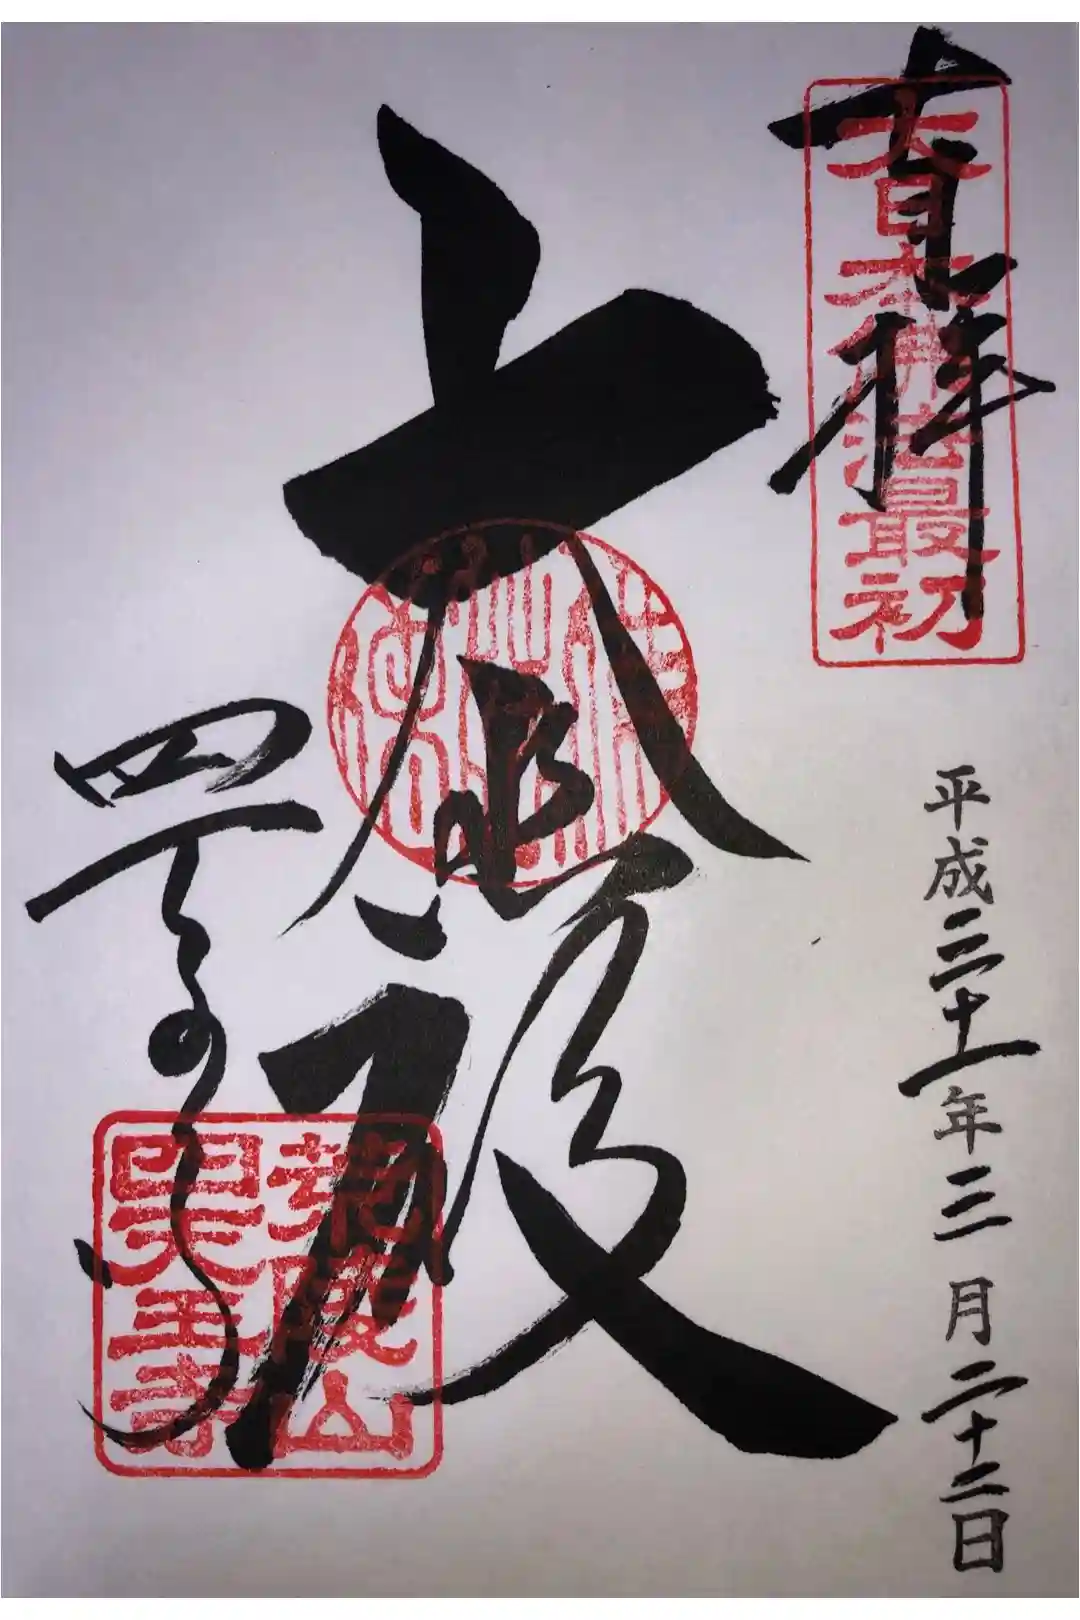 奉拝
大日本佛法最初
平成三十一年三月二十二日
大悲殿
四天王寺
荒陵山
四天王寺